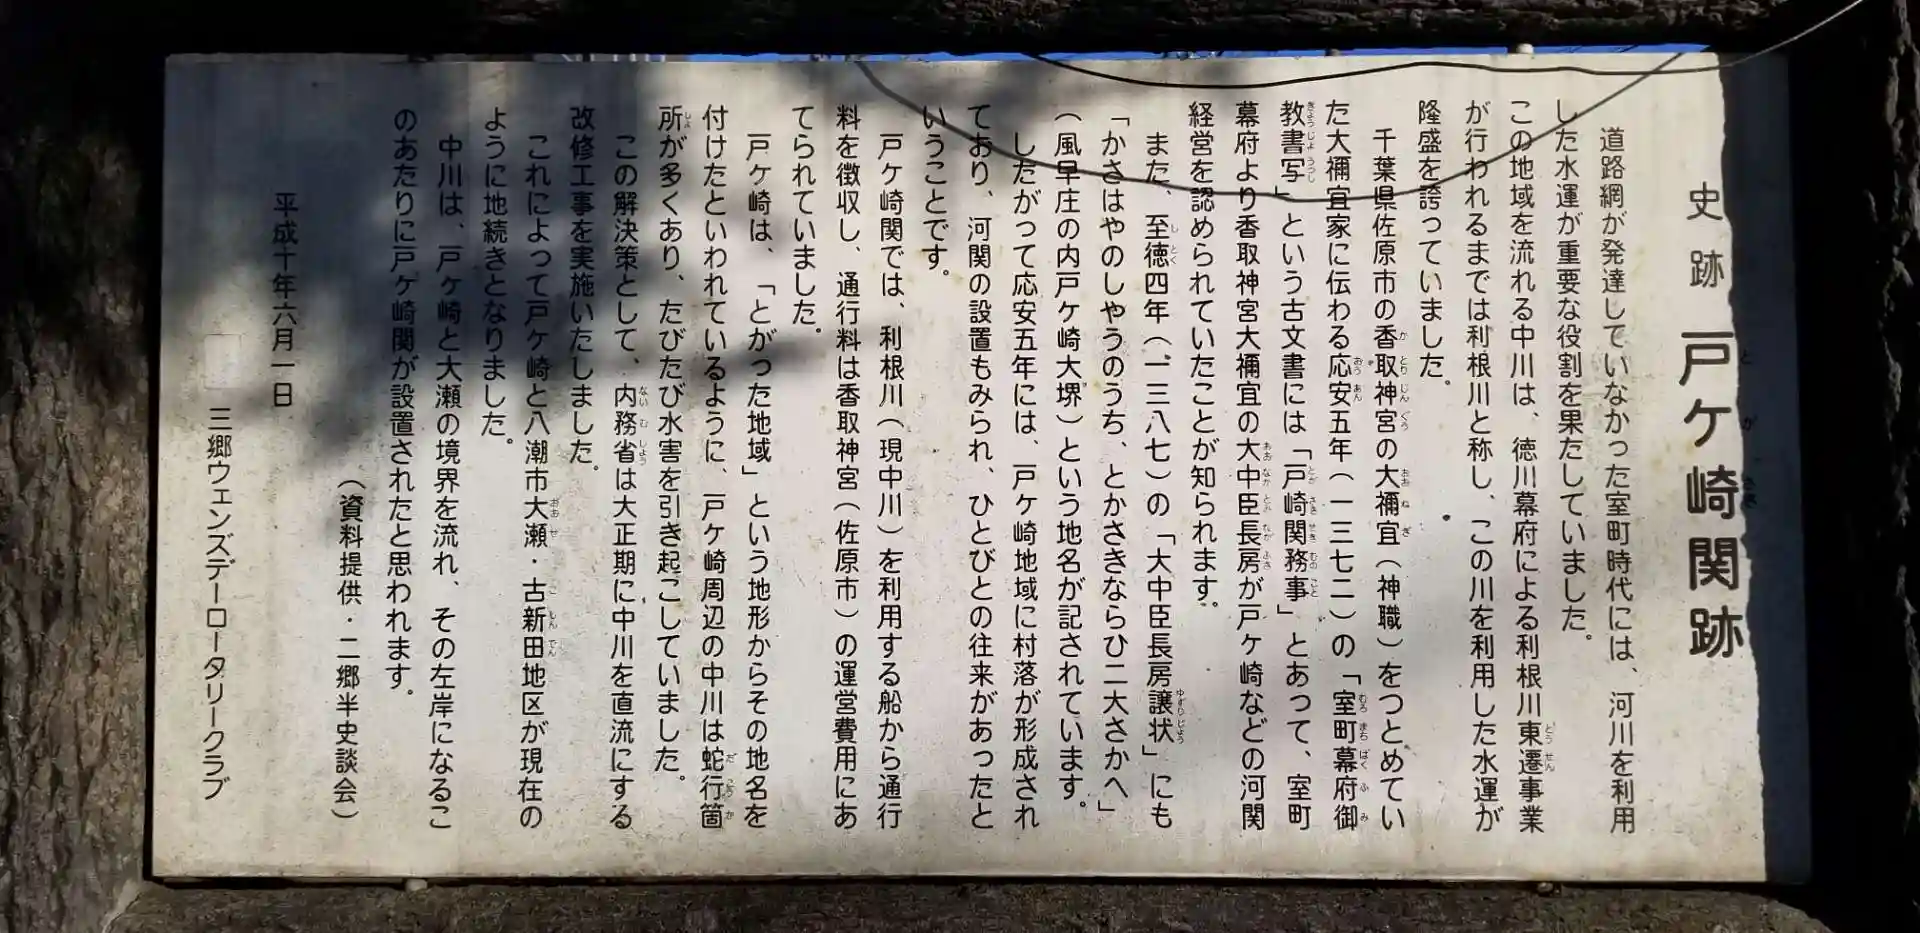 史跡 戸ケ崎関跡
道路網が発達していなかった室町時代には、河川を利用
した水運が重要な役割を果たしていました。
この地域を流れる中川は、徳川幕府による利根川東遷事業
が行われるまでは利根川と称し、この川を利用した水運が
隆盛を誇っていました。
千葉県佐原市の香取神宮の大禰宜(神職)をつとめてい
た大禰宜家に伝わる応安五年(一三七二)の「室町幕府御
教書写」という古文書には「戸崎関務事」とあって、室町
幕府より香取神宮大禰宜の大中臣長房が戸ケ崎などの河関
経営を認められていたことが知られます。
また、至徳四年(一三八七)の「大中臣長房譲状」にも
「かさはやのしやうのうち、とかさきならひ二大さかへ」
(風早庄の内戸ケ崎大堺)という地名が記されています。
したがって応安五年には、戸ケ崎地域に村落が形成され
ており、河関の設置もみられ、ひとびとの往来があったと
いうことです。
戸ケ崎関では、利根川(現中川)を利用する船から通行
料を徴収し、通行料は香取神宮(佐原市)の運営費用にあ
てられていました。
戸ケ崎は、「とがった地域」という地形からその地名を
付けたといわれているように、戸ケ崎周辺の中川は蛇行箇
所が多くあり、たびたび水害を引き起こしていました。
この解決策として、内務省は大正期に中川を直流にする
改修工事を実施いたしました。
これによって戸ケ崎と八潮市大瀬・古新田地区が現在の
ように地続きとなりました。
中川は、戸ケ崎と大瀬の境界を流れ、その左岸になるこ
のあたりに戸ケ崎関が設置されたと思われます。
(資料提供・二郷半史談会)
平成十年六月一日
三郷ウェンズデーロータリークラブ